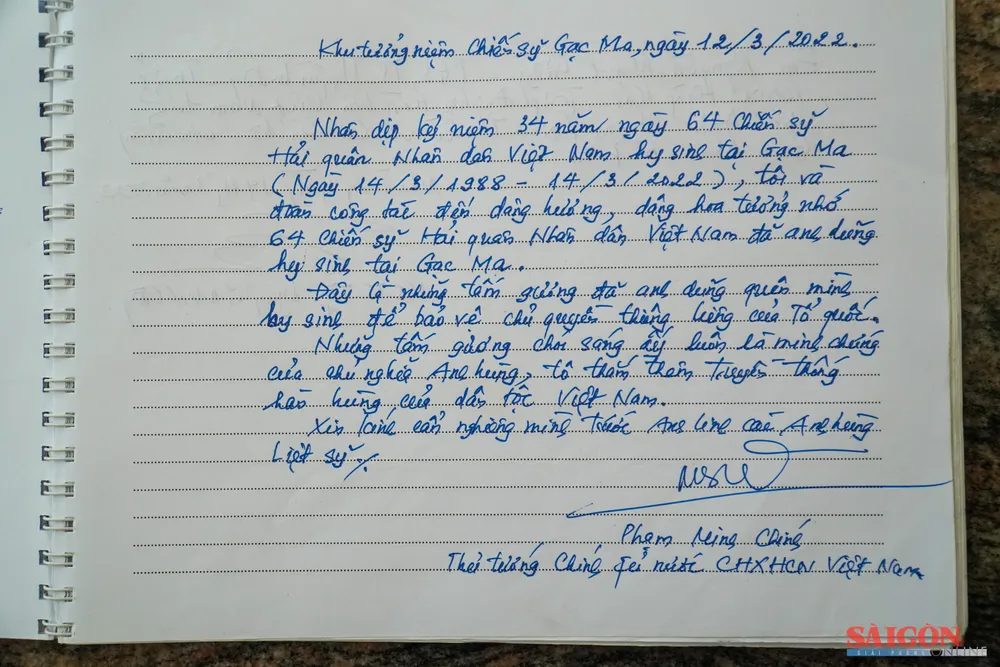 Khu tưởng niệm Chiến sỹ Gạc Ma, ngày 12/3/2022.
Nhân dịp kỷ niệm 34 năm ngày 64 Chiến sỹ
Hải quân Nhân dân Việt Nam hy sinh tại Gạc Ma
(Ngày 14/3/1988 - 14/3/2022), tôi và
đoàn công tác đến dâng hương, dâng hoa tưởng nhớ
64 Chiến sỹ Hải quân Nhân dân Việt Nam đã anh dũng
hy sinh tại Gạc Ma.
Đây là những tấm gương đã anh dũng quên mình
hy sinh để bảo vệ chủ quyền thiêng liêng của Tổ quốc.
Những tấm gương chói sáng ấy luôn là minh chứng
của chủ nghĩa Anh hùng, tô thắm thêm Truyền thống
hào hùng của dân tộc Việt Nam.
Xin kính cẩn nghiêng mình trước Anh linh các Anh hùng
Liệt sỹ./.
Phạm Minh Chính
Thủ tướng Chính phủ nước CHXHCN Việt Nam
SÀIGÒN
GIẢI PHÓNG ONLINE